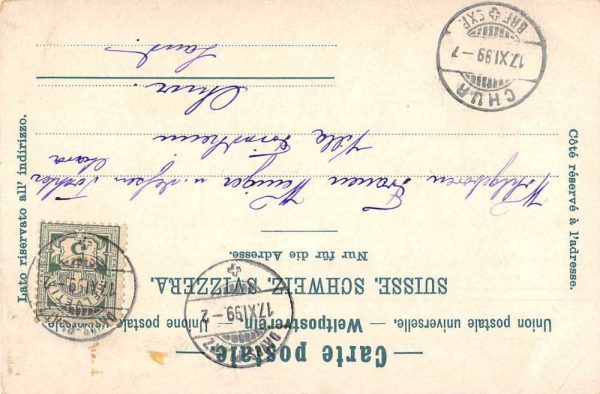 Carte postale.
Union postale universelle. — Weltpostverein. — Unione postale universale.
SUISSE. SCHWEIZ. SVIZZERA.
Nur für die Adresse.
Côté réservé à l'adresse.
Lato riservato all' indirizzo.
Wohlgeboren Frauen Wenger u. dessen Tochter
Clara
Villa
Chur.
CHUR
17.XI.99.–7
BRF. EXP.
17.XI.99.–2
HELVETIA
5